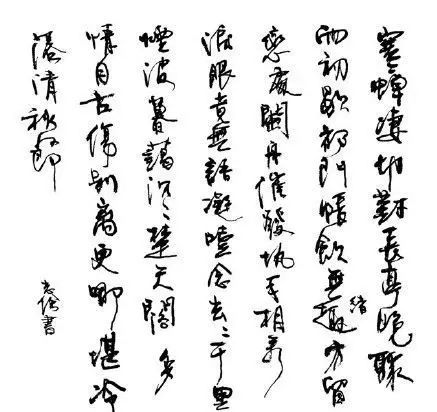 寒蟬凄切對長亭晚聚
雨初歇都門帳飲無趣緒方留
戀處闌舟催發執手相看
淚眼竟無語凝噎念去〻千里
煙波暮靄沉〻楚天闊多
情自古傷別離更哪堪冷
落清秋節
書